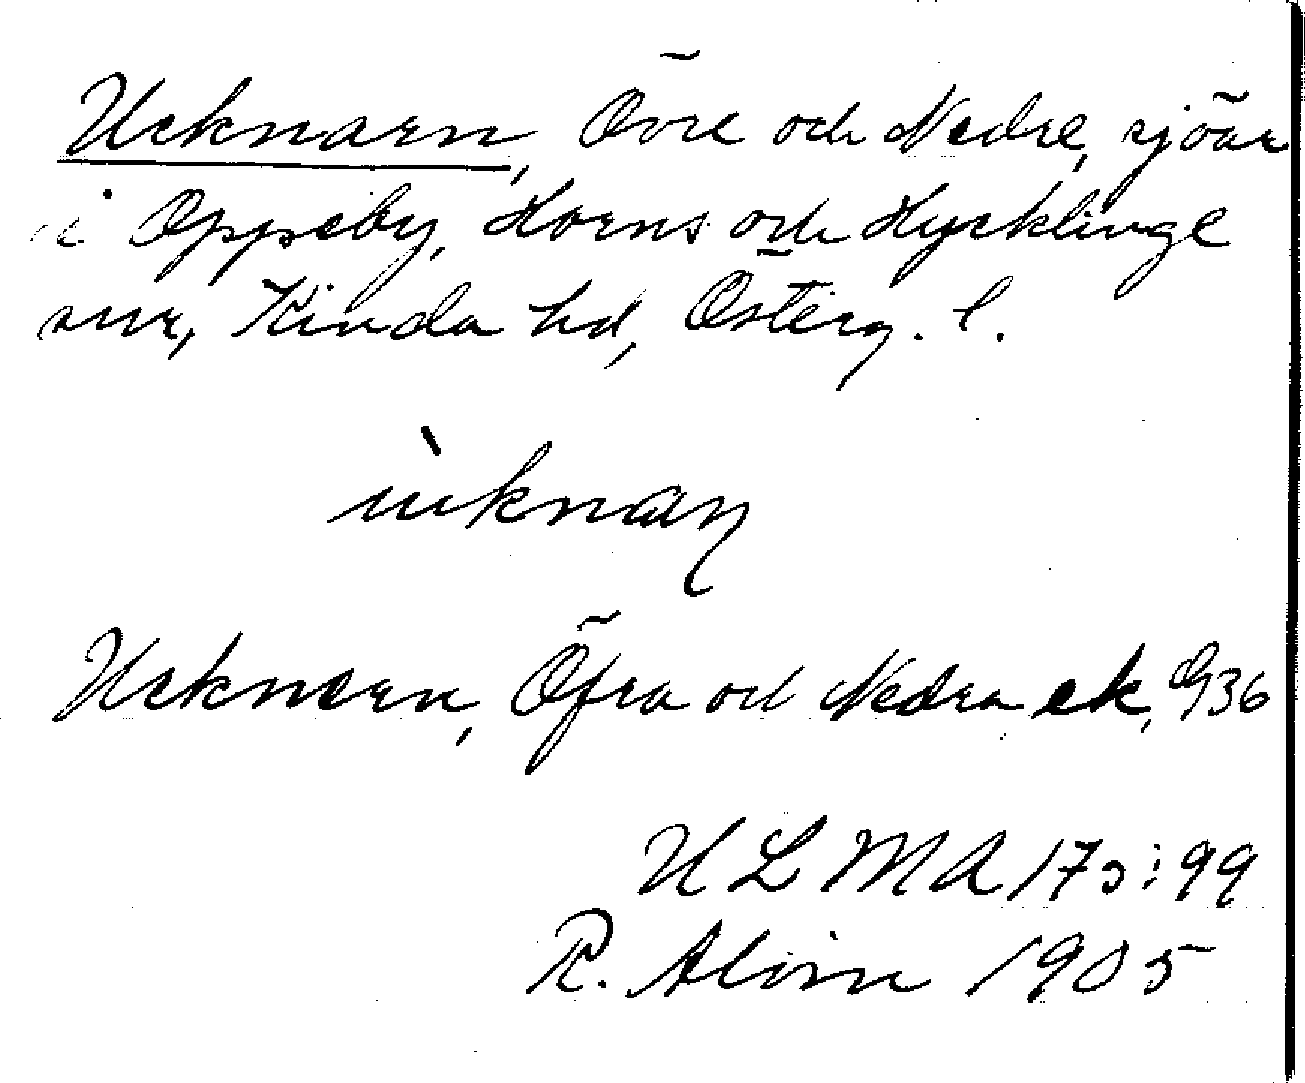 Ucknaen, Övre och Nedre, sjöar
i Oppeby, Horns och Hycklinge
snr, Kinda hd, Österg. l.
ùknaɳ
Ucknaen, Öfra och Nedra ek, G36
ULMA 173:99
R. Alvin 1905